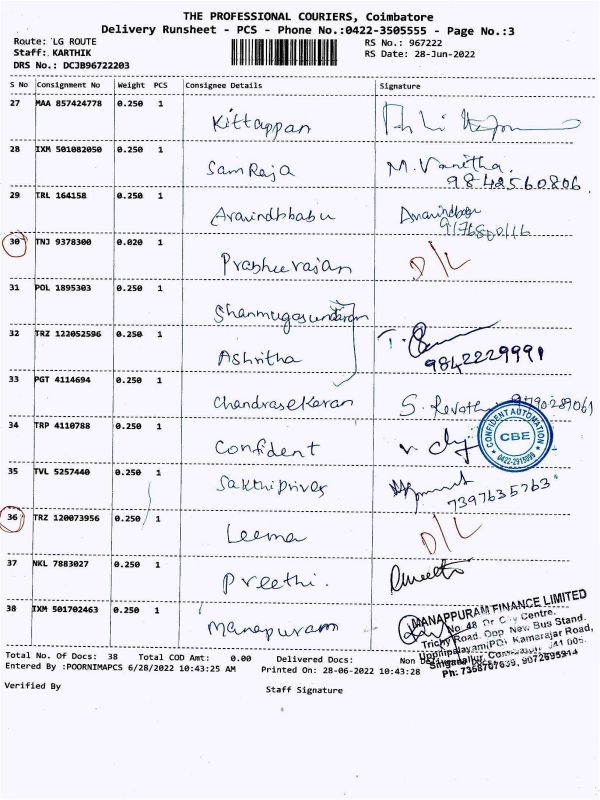 THE PROFESSIONAL COURIERS, Coimbatore
Delivery Runsheet - PCS - Phone No.:0422-3505555 - Page No.:3
Route: LG ROUTE RS No.: 967222
Staff: KARTHIK RS Date: 28-Jun-2022
DRS No.: DCJB96722203
S No Consignment No Weight PCS Consignee Details Signature
27 MAA 857424778 0.250 1 Kittappan
28 IXM 501082050 0.250 1 SamRaja M. Vanitha.
9842560806.
29 TRL 164158 0.250 1 Aravindbabu Aravindbabu
30 TNJ 9378300 0.020 1 Prabhu rajan D/L
31 POL 1895303 0.250 1 Shanmugasundaram
32 TRZ 122052596 0.250 1 Ashritha
9842229991
33 PGT 4114694 0.250 1 Chandrasekaran S. Revathi
34 TRP 4110788 0.250 1 Confident
CONFIDENT AUTOMATION
CBE
0422-2915099
35 TVL 5257440 0.250 1
7397635763
36 TRZ 120073956 0.250 1 Leema D/L
37 NKL 7883027 0.250 1 Preethi. Preethi
38 IXM 501702463 0.250 1 Manapuram
MANAPPURAM FINANCE LIMITED
No 48 Dr City Centre.
Trichy Road. Opp New Bus Stand.
Uppilipalayam(PO) Kamarajar Road,
Singanallur, 641 005.
Ph: 9072695914
Total No. Of Docs: 38 Total COD Amt: 0.00 Delivered Docs: Non
Entered By :POORNIMAPCS 6/28/2022 10:43:25 AM Printed On: 28-06-2022 10:43:28
Verified By Staff Signature